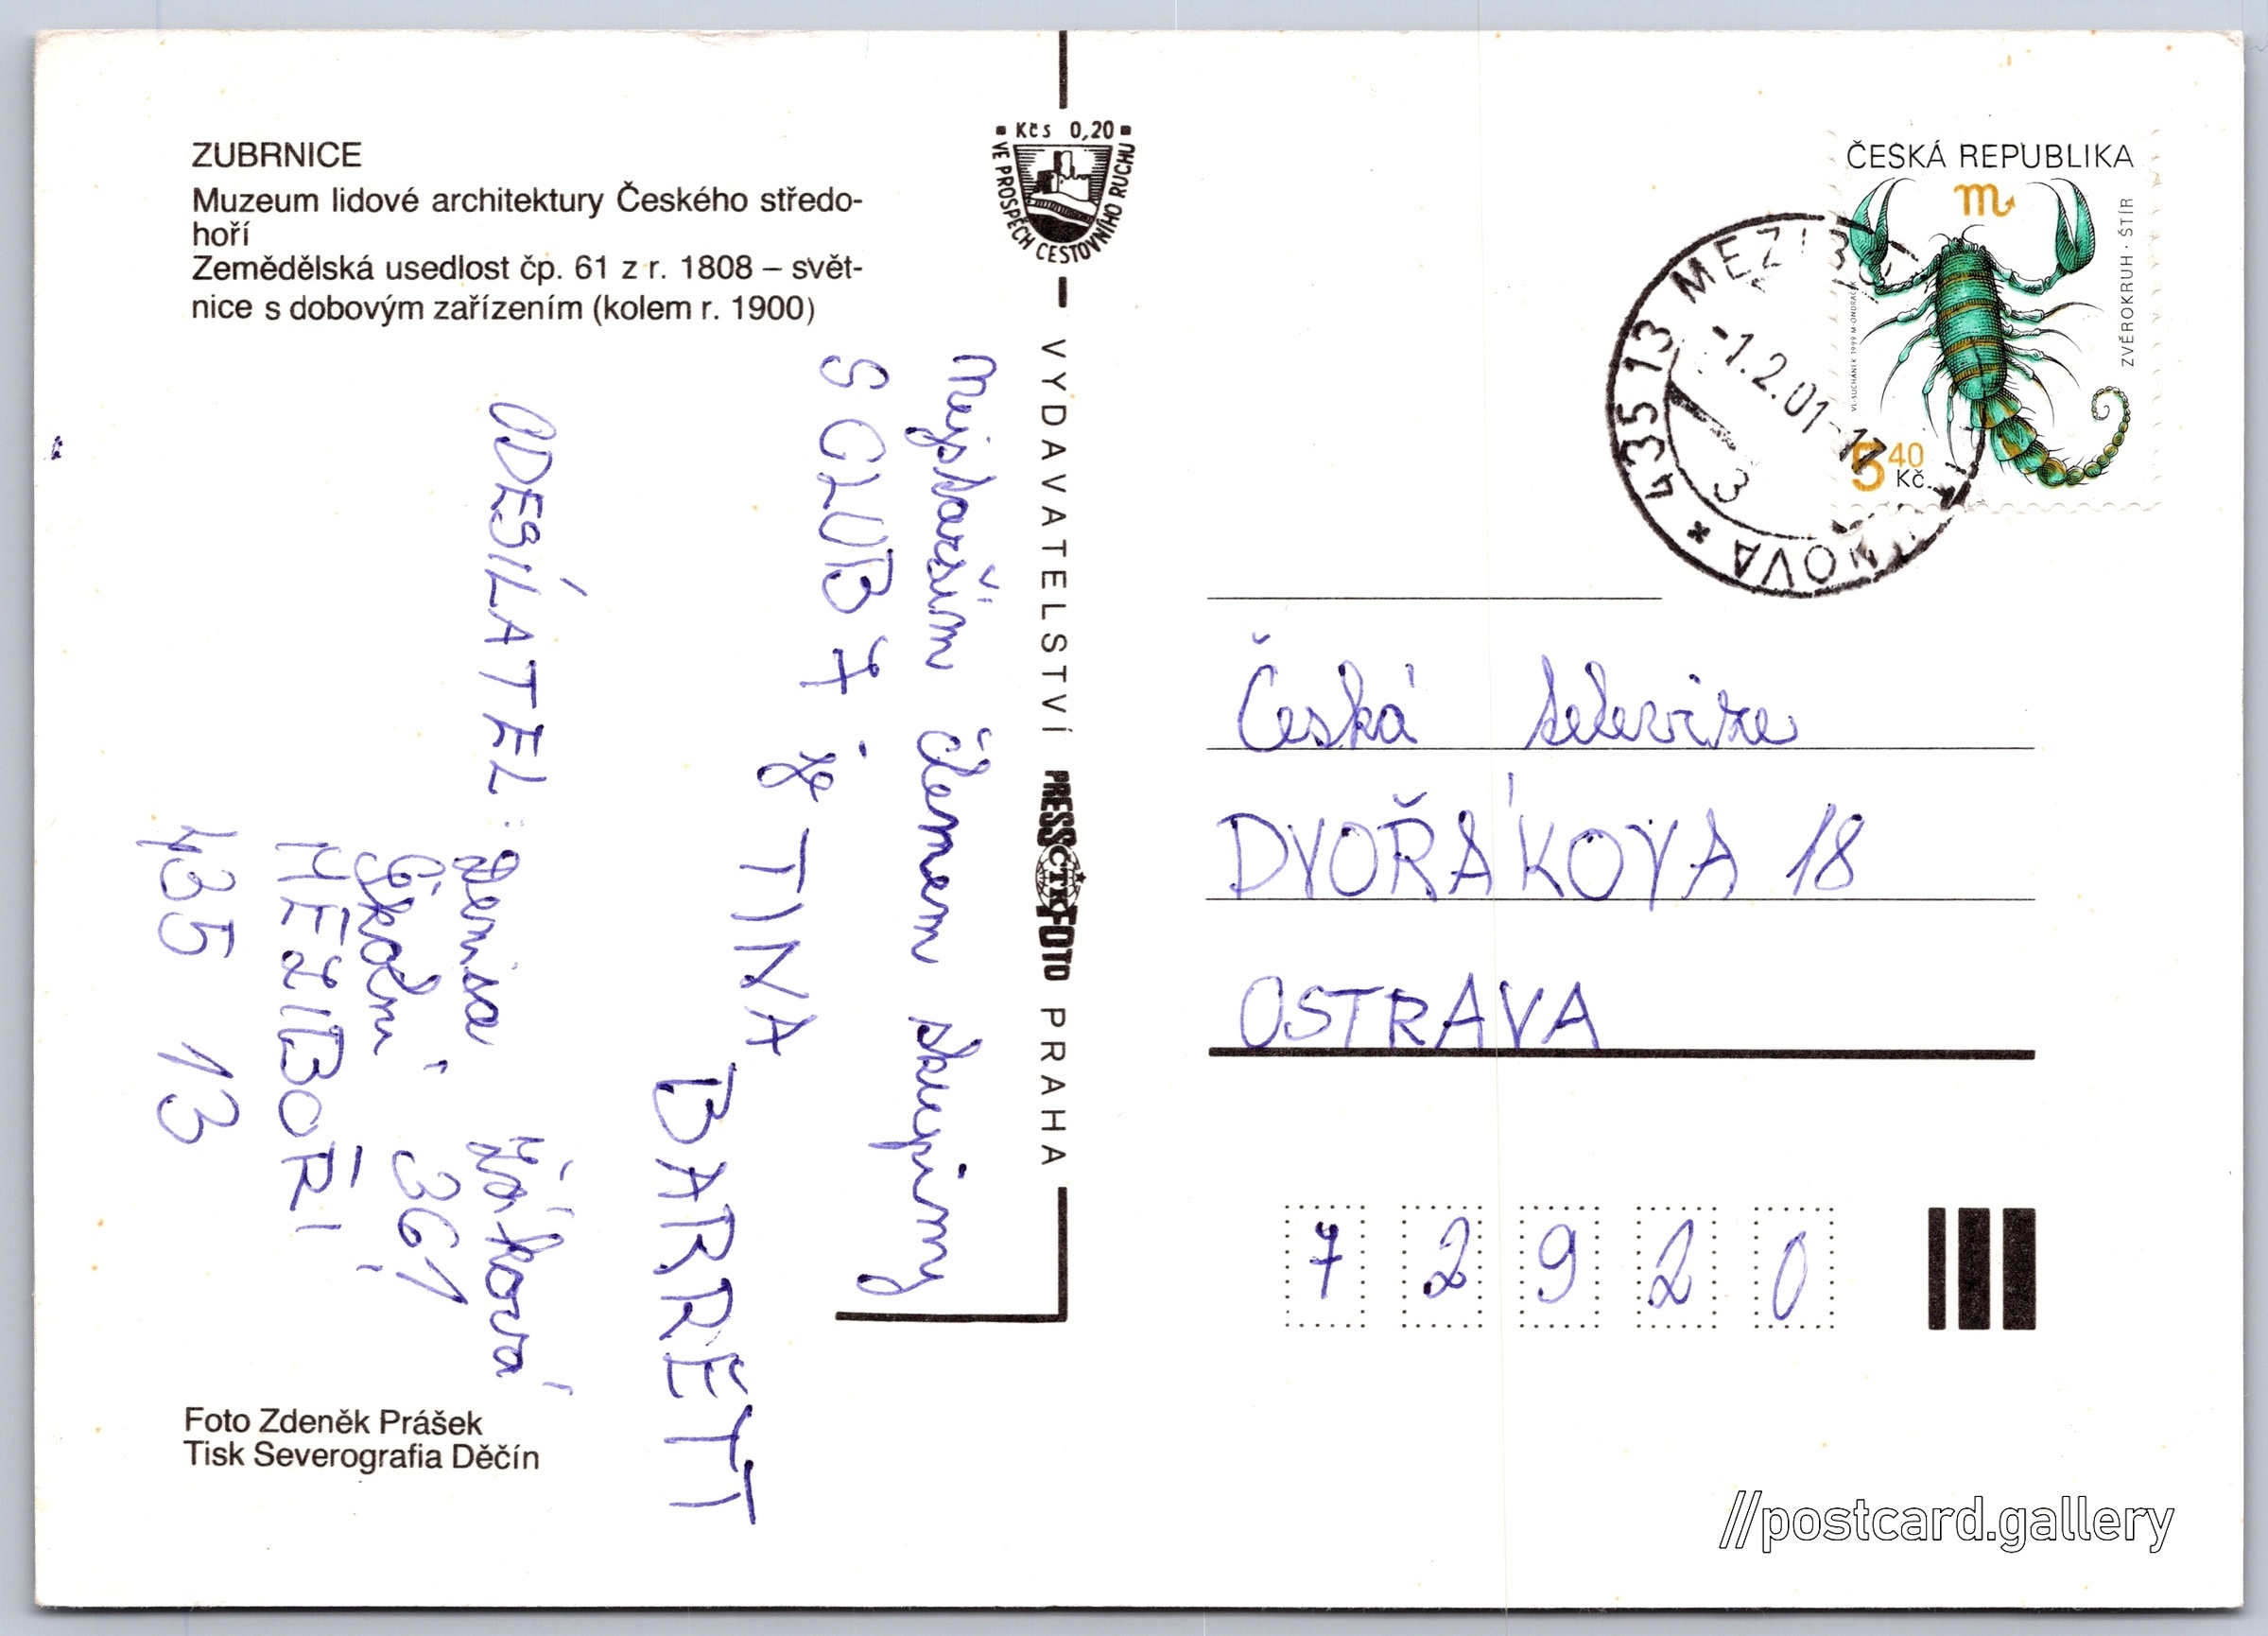 ZUBRNICE
Muzeum lidové architektury Českého středo-
hoří
Zemědělská usedlost čp. 61 z r. 1808 – svět-
nice s dobovým zařízením (kolem r. 1900)
Kčs 0,20
VE PROSPĚCH CESTOVNÍHO RUCHU
VYDAVATELSTVÍ PRESSFOTO PRAHA
ČTK
Nejstarším členem skupiny
S CLUB 7 je TINA
BARRETT
ODESÍLATEL: Denisa
Školní 361
MEZIBOŘÍ
435 13
Foto Zdeněk Prášek
Tisk Severografia Děčín
ČESKÁ REPUBLIKA
ZVĚROKRUH · ŠTÍR
5 40
Kč
435 13 MEZIBO
-1.2.01-
3
Česká televize
DVOŘÁKOVA 18
OSTRAVA
7 2 9 2 0
//postcard.gallery